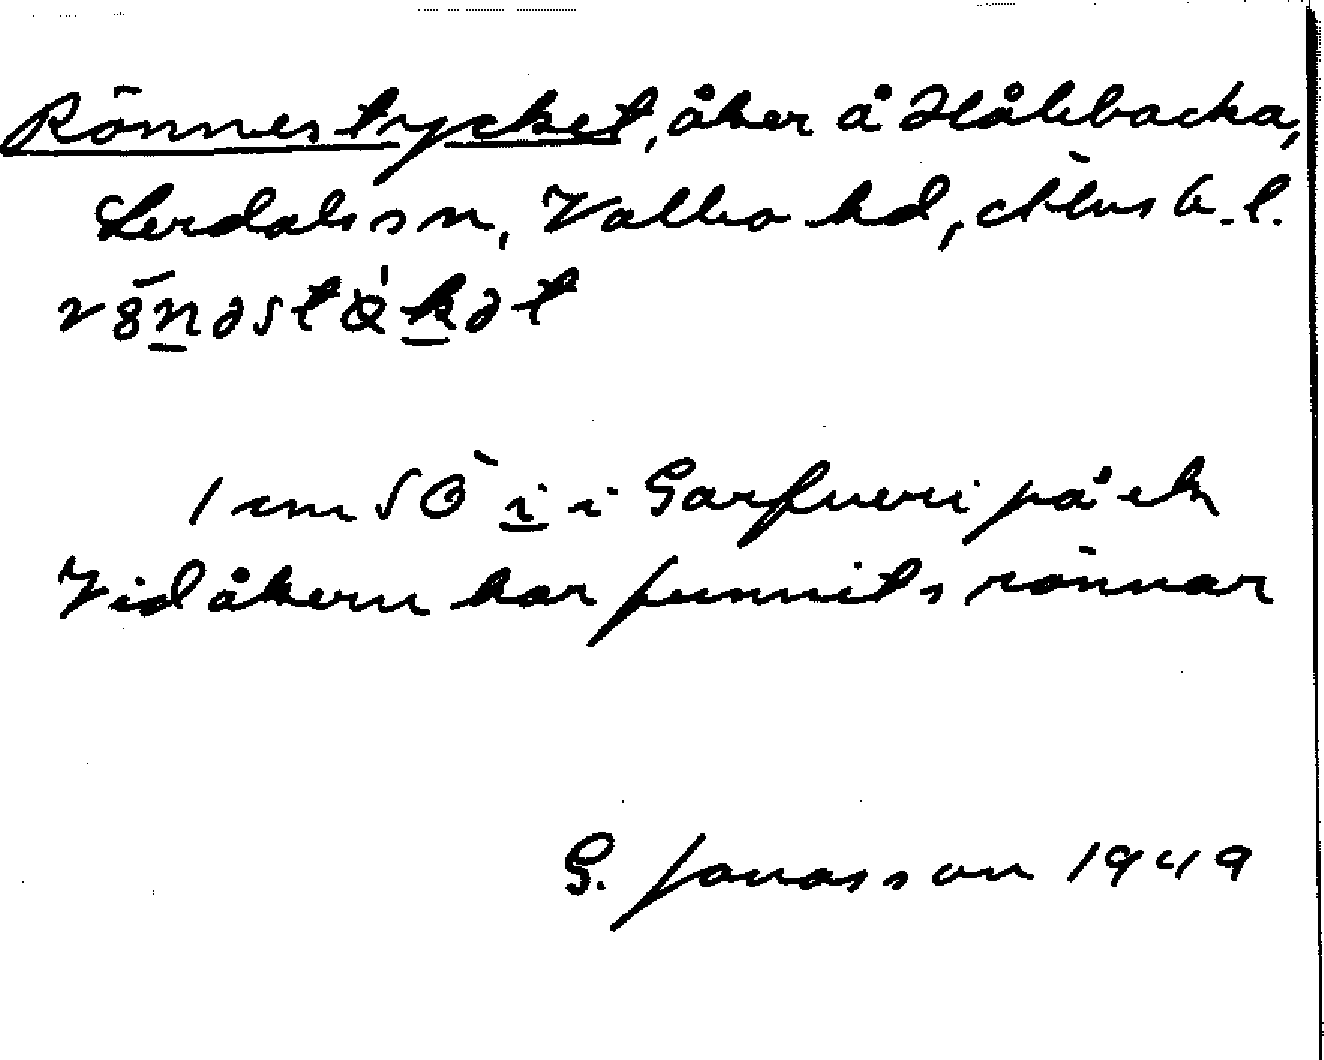 Rönnestycket, åker å Hålebacka,
Lerdals sn, Valbo hd, Älvsb. l.
1 cm SÖ i i Garfveri på ek
Vid åkern har funnits rönnar
G. Jonasson 1949